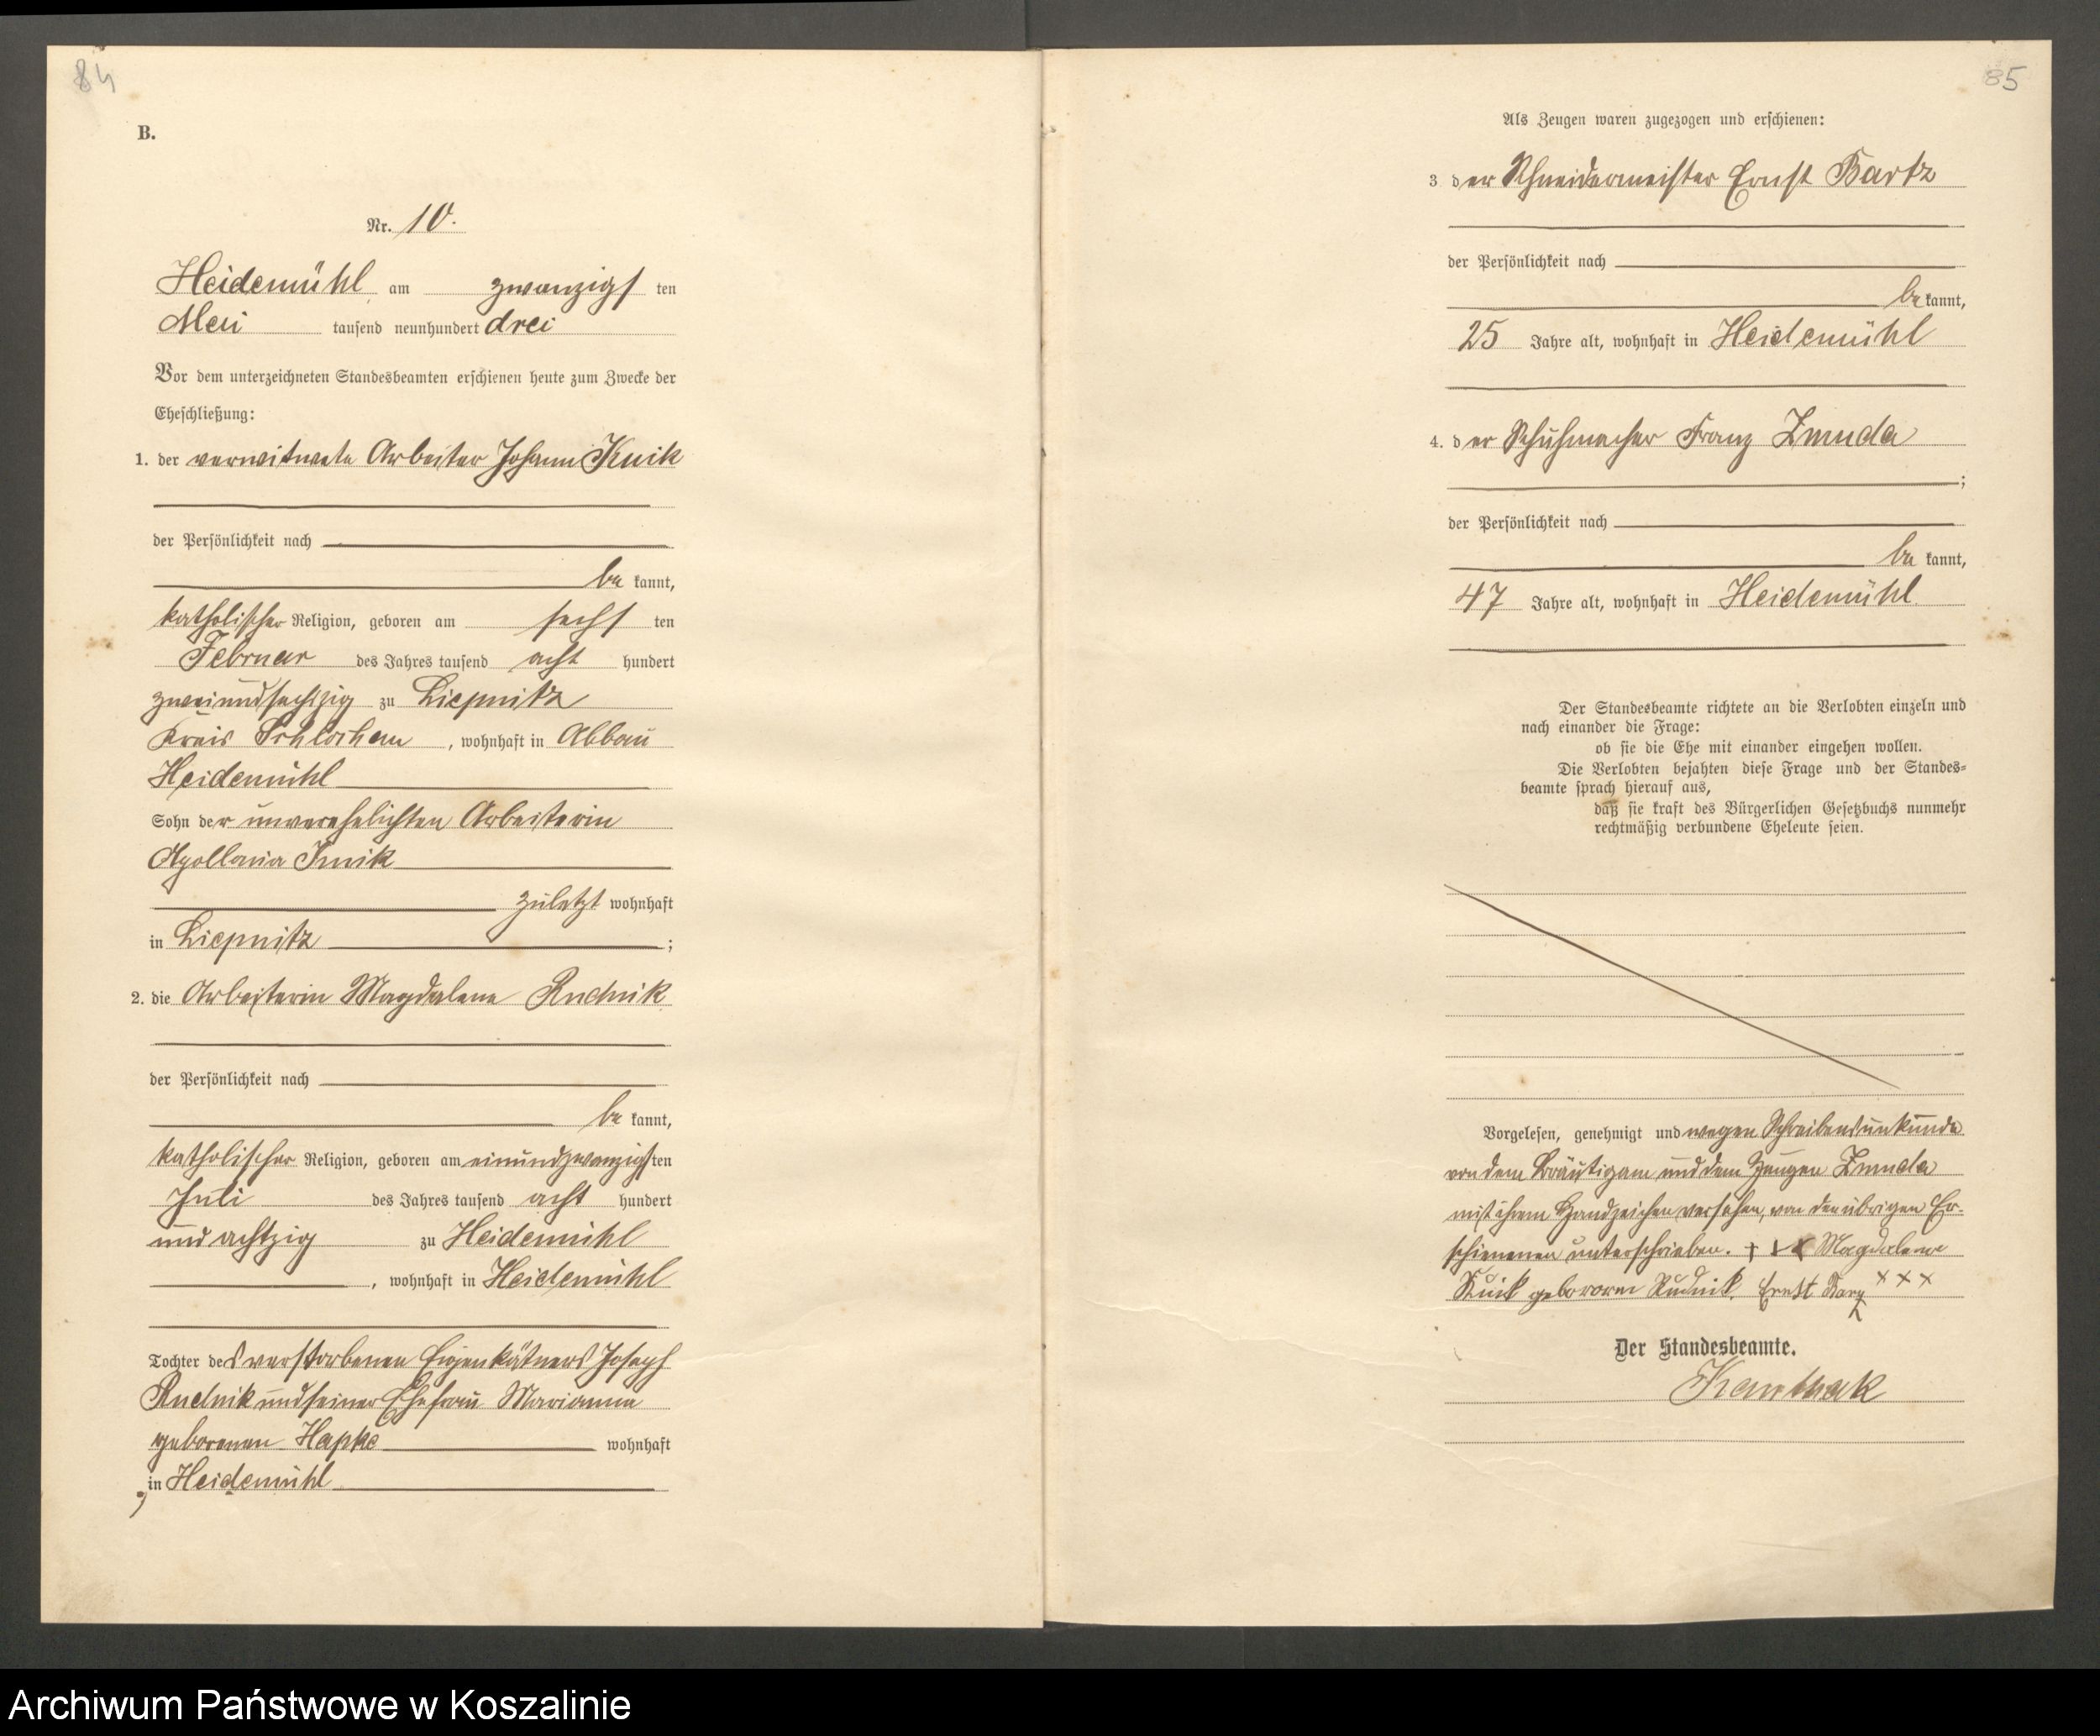 84
B.
Nr. 10.
Heidemühl am zwanzigsten
Mai tausend neunhundert drei
Vor dem unterzeichneten Standesbeamten erschienen heute zum Zwecke der
Eheschließung:
1. der verwitwete Arbeiter Johann Kuik
der Persönlichkeit nach
be kannt,
katholischer Religion, geboren am sechsten
Februar des Jahres tausend acht hundert
zweiundsechszig zu Liepnitz
Kreis Schlochau, wohnhaft in Abbau
Heidemühl
Sohn der unverehelichten Arbeiterin
Apollonia Kuik
zuletzt wohnhaft
in Liepnitz ;
2. die Arbeiterin Magdalena Rudnik
der Persönlichkeit nach
be kannt,
katholischer Religion, geboren am einundzwanzigsten
Juli des Jahres tausend acht hundert
und achtzig zu Heidemühl
, wohnhaft in Heidemühl
Tochter des verstorbenen Eigenkätners Joseph
Rudnik und seiner Ehefrau Marianna
geborenen Hapke wohnhaft
in Heidemühl
;
85
Als Zeugen waren zugezogen und erschienen:
3 der Schneidermeister Ernst Bartz
der Persönlichkeit nach
be kannt,
25 Jahre alt, wohnhaft in Heidemühl
4. der Schuhmacher Franz Zmuda
;
der Persönlichkeit nach
be kannt,
47 Jahre alt, wohnhaft in Heidemühl
Der Standesbeamte richtete an die Verlobten einzeln und
nach einander die Frage:
ob sie die Ehe mit einander eingehen wollen.
Die Verlobten bejahten diese Frage und der Standes-
beamte sprach hierauf aus,
daß sie kraft des Bürgerlichen Gesetzbuchs nunmehr
rechtmäßig verbundene Eheleute seien.
Vorgelesen, genehmigt und wegen Schreibensunkunde
von dem Bräutigam und dem Zeugen Zmuda
mit ihrem Handzeichen versehen, von den übrigen Er-
schienenen unterschrieben. + + + Magdalena
Kuik geborene Rudnik. Ernst Bartz × × ×
Der Standesbeamte.
Kanthak
Archiwum Państwowe w Koszalinie